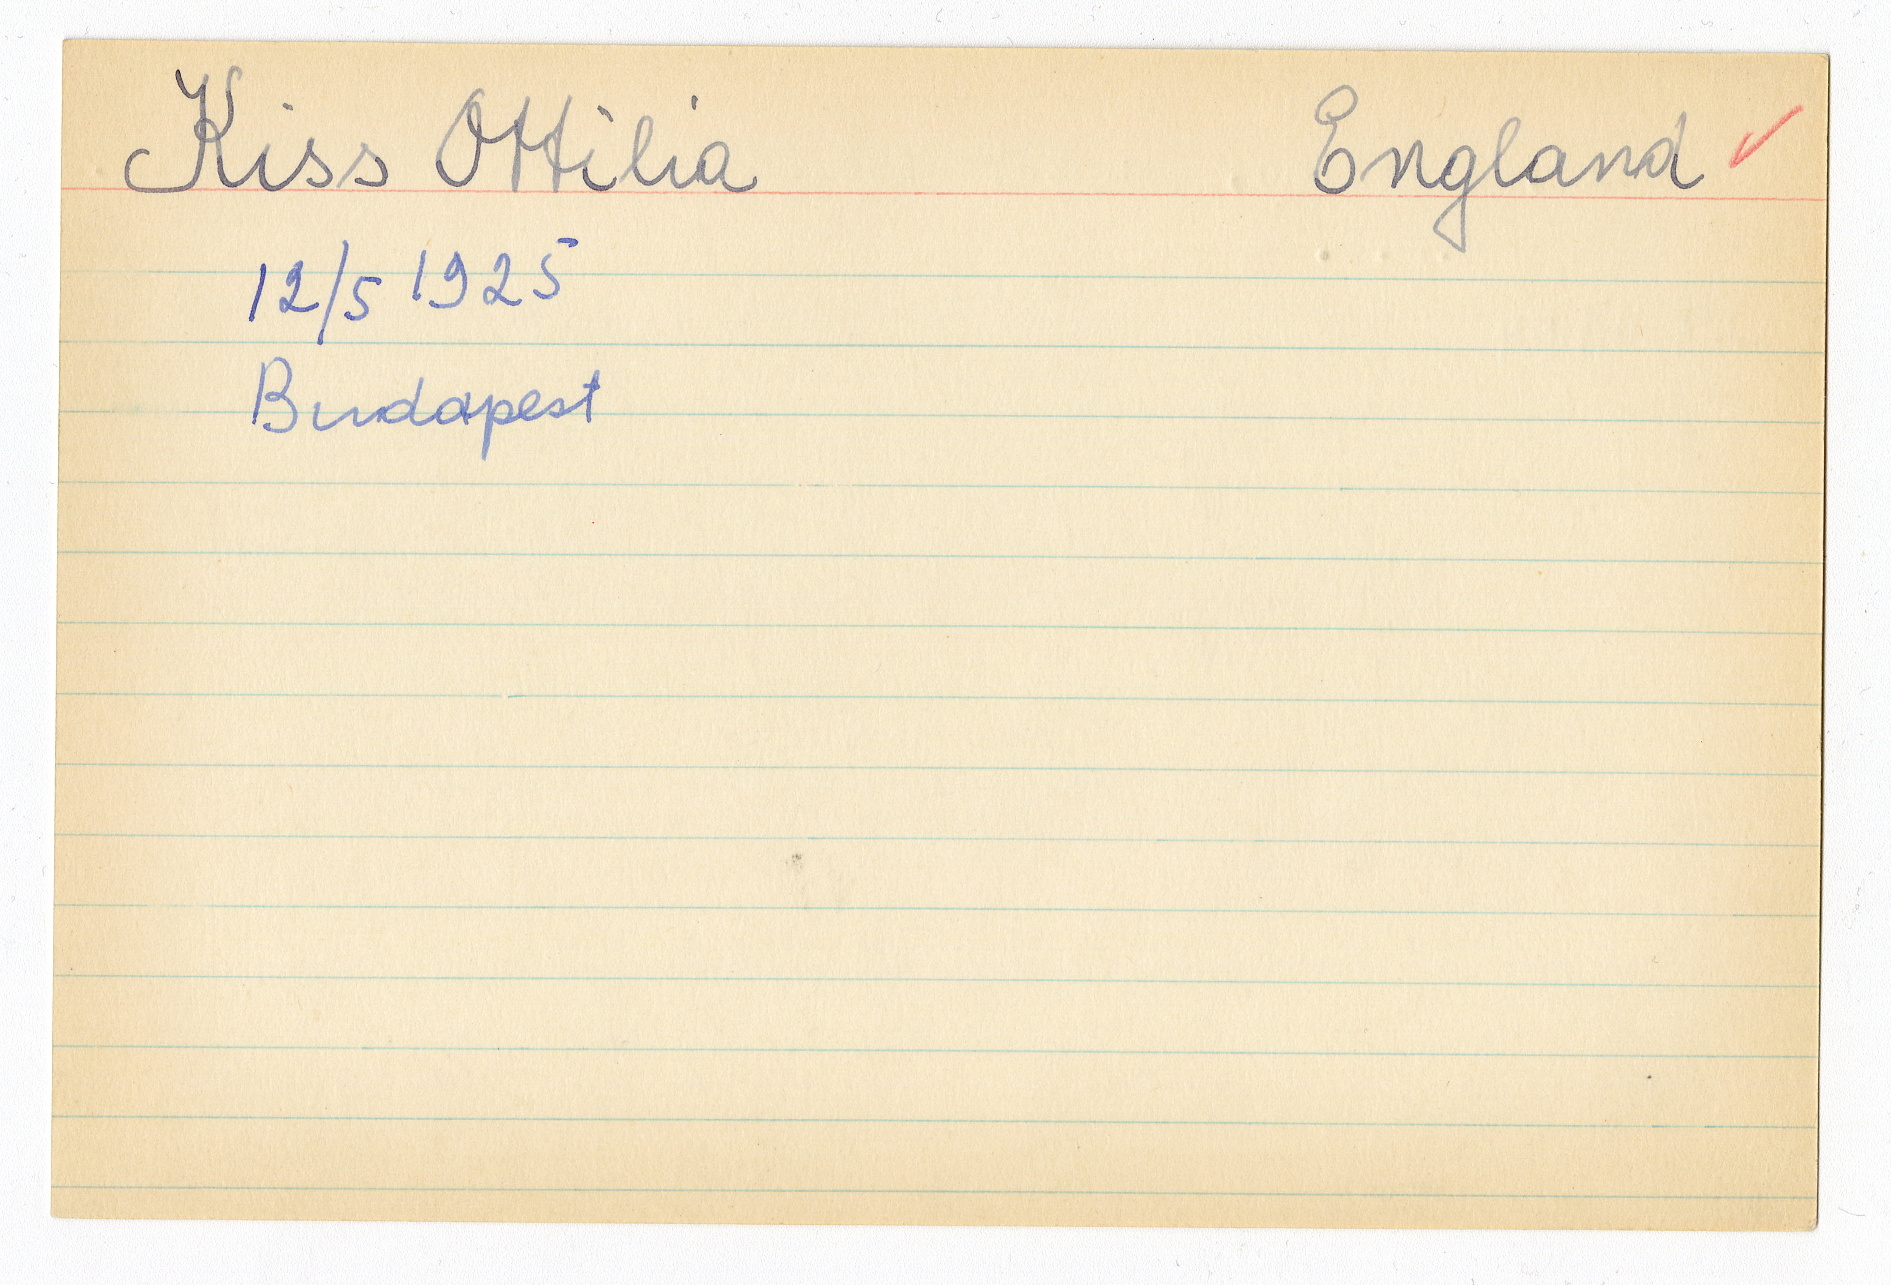 Kiss Ottilia England ✓
12/5 1925
Budapest